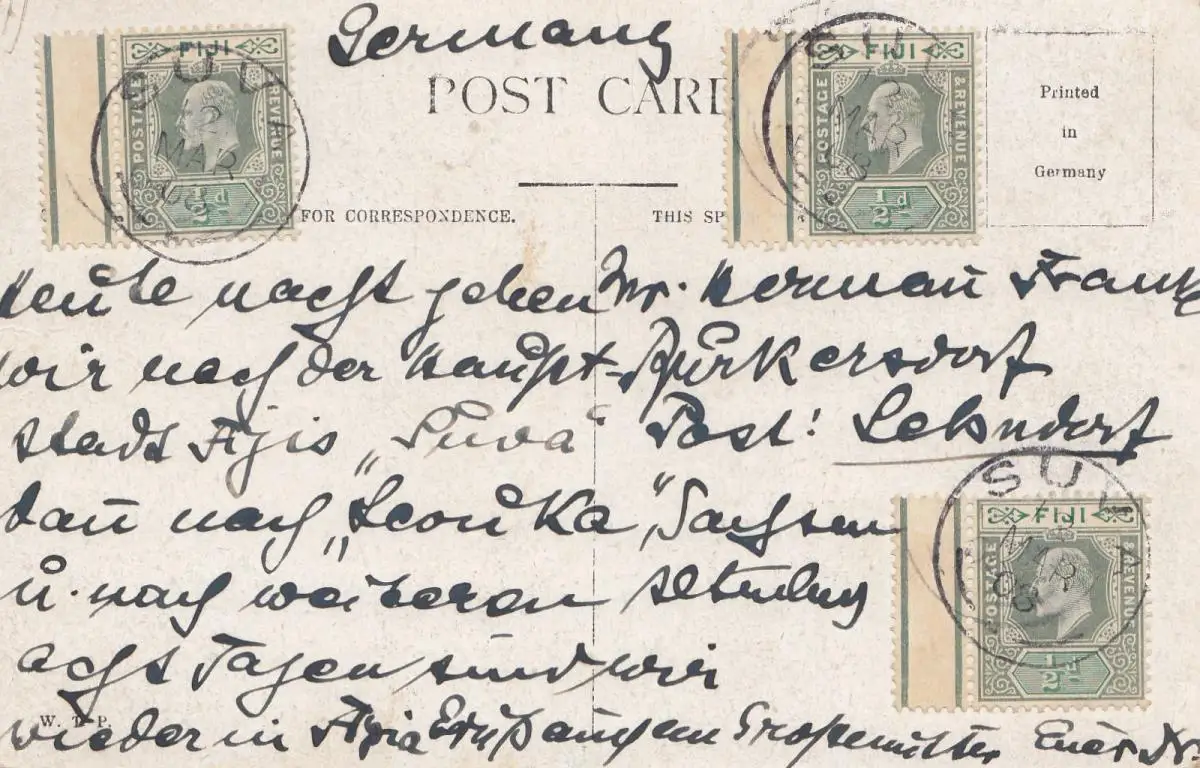 Germany
POST CARD
FIJI
POSTAGE & REVENUE
½d
SUVA
2
MAR
08
FIJI
POSTAGE & REVENUE
½d
SUVA
2
MAR
08
Printed
in
Germany
FOR CORRESPONDENCE.
THIS SP
Heute nacht gehen
wir nach der Haupt-
stadt Fijis „Suva“
dan̄ nach „Leouka“,
u. nach weiteren
acht Tagen sind wir
wieder in Apia Gruß auch an Großemutter Euer
Mr. Herman̄ Frank
Bürkersdorf
Post: Lehndorf
Sachsen
Altenburg
SUVA
2
MAR
08
FIJI
POSTAGE & REVENUE
½d
W. T. P.